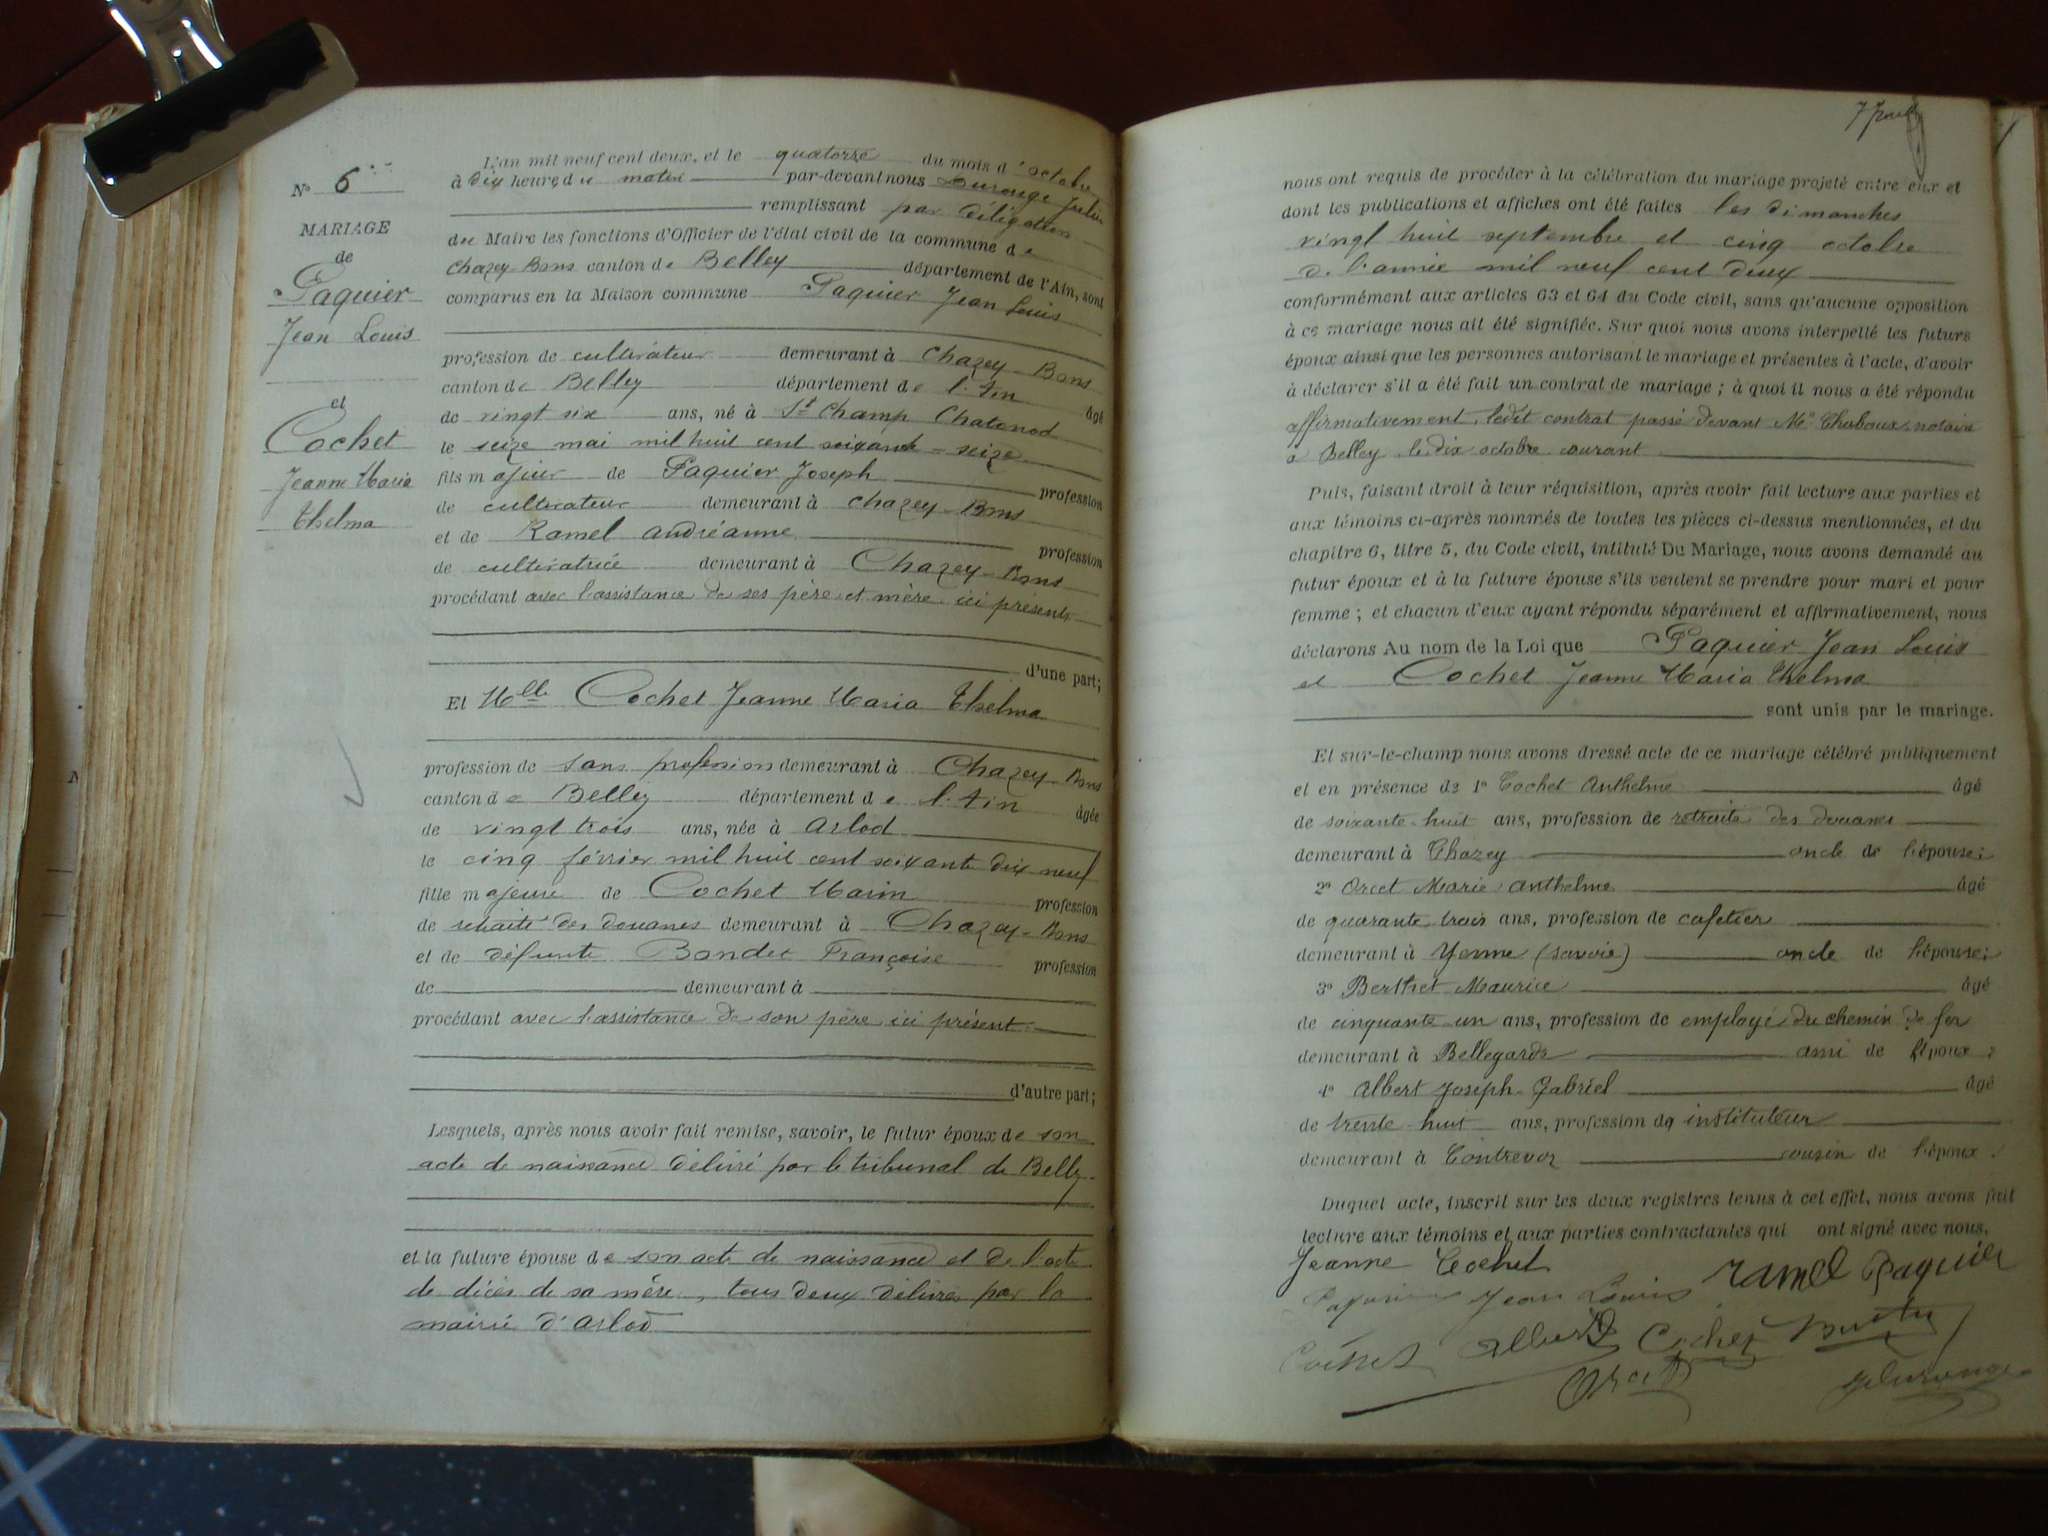 N° 6
MARIAGE
de
Paquier
Jean Louis
et
Cochet
Jeanne Maria
Thelma
L'an mil neuf cent deux, et le quatorze du mois d'octobre
à dix heures du matin par-devant nous Durouge Julien
remplissant par délégation
du Maire les fonctions d'Officier de l'état civil de la commune de
Chazey-Bons canton de Belley département de l'Ain, sont
comparus en la Maison commune Paquier Jean Louis
profession de cultivateur demeurant à Chazey-Bons
canton de Belley département de l'Ain âgé
de vingt six ans, né à St Champ Chatonod
le seize mai mil huit cent soixante-seize
fils majeur de Paquier Joseph profession
de cultivateur demeurant à Chazey-Bons
et de Ramel Andréanne profession
de cultivatrice demeurant à Chazey-Bons
procédant avec l'assistance de ses père et mère ici présents
d'une part;
Et Mlle Cochet Jeanne Maria Thelma
profession de sans profession demeurant à Chazey-Bons
canton de Belley département de l'Ain âgée
de vingt trois ans, née à Arlod
le cinq février mil huit cent soixante dix neuf
fille majeure de Cochet Marin profession
de retraité des douanes demeurant à Chazey-Bons
et de défunte Bondet Françoise profession
de demeurant à
procédant avec l'assistance de son père ici présent
d'autre part;
Lesquels, après nous avoir fait remise, savoir, le futur époux de son
acte de naissance délivré par le tribunal de Belley.
et la future épouse de son acte de naissance et de l'acte
de décès de sa mère, tous deux délivrés par la
mairie d'Arlod
nous ont requis de procéder à la célébration du mariage projeté entre eux et
dont les publications et affiches ont été faites les dimanches
vingt huit septembre et cinq octobre
de l'année mil neuf cent deux
conformément aux articles 63 et 64 du Code civil, sans qu'aucune opposition
à ce mariage nous ait été signifiée. Sur quoi nous avons interpellé les futurs
époux ainsi que les personnes autorisant le mariage et présentes à l'acte, d'avoir
à déclarer s'il a été fait un contrat de mariage ; à quoi il nous a été répondu
affirmativement, ledit contrat passé devant Me Chaboux notaire
à Belley le dix octobre courant
Puis, faisant droit à leur réquisition, après avoir fait lecture aux parties et
aux témoins ci-après nommés de toutes les pièces ci-dessus mentionnées, et du
chapitre 6, titre 5, du Code civil, intitulé Du Mariage, nous avons demandé au
futur époux et à la future épouse s'ils veulent se prendre pour mari et pour
femme ; et chacun d'eux ayant répondu séparément et affirmativement, nous
déclarons Au nom de la Loi que Paquier Jean Louis
et Cochet Jeanne Maria Thelma
sont unis par le mariage.
Et sur-le-champ nous avons dressé acte de ce mariage célébré publiquement
et en présence de 1° Cochet Anthelme âgé
de soixante-huit ans, profession de retraité des douanes
demeurant à Chazey oncle de l'épouse;
2° Orcet Marie Anthelme âgé
de quarante trois ans, profession de cafetier
demeurant à Yenne (Savoie) oncle de l'épouse;
3° Berthet Maurice âgé
de cinquante un ans, profession de employé du chemin de fer
demeurant à Bellegarde ami de l'époux ;
4° Albert Joseph-Gabriel âgé
de trente-huit ans, profession de instituteur
demeurant à Contrevoz cousin de l'époux.
Duquel acte, inscrit sur les deux registres tenus à cet effet, nous avons fait
lecture aux témoins et aux parties contractantes qui ont signé avec nous.
Jeanne Cochet
Jean Louis Ramel Paquier
Cochet Albert Cochet
Orcet Durouge